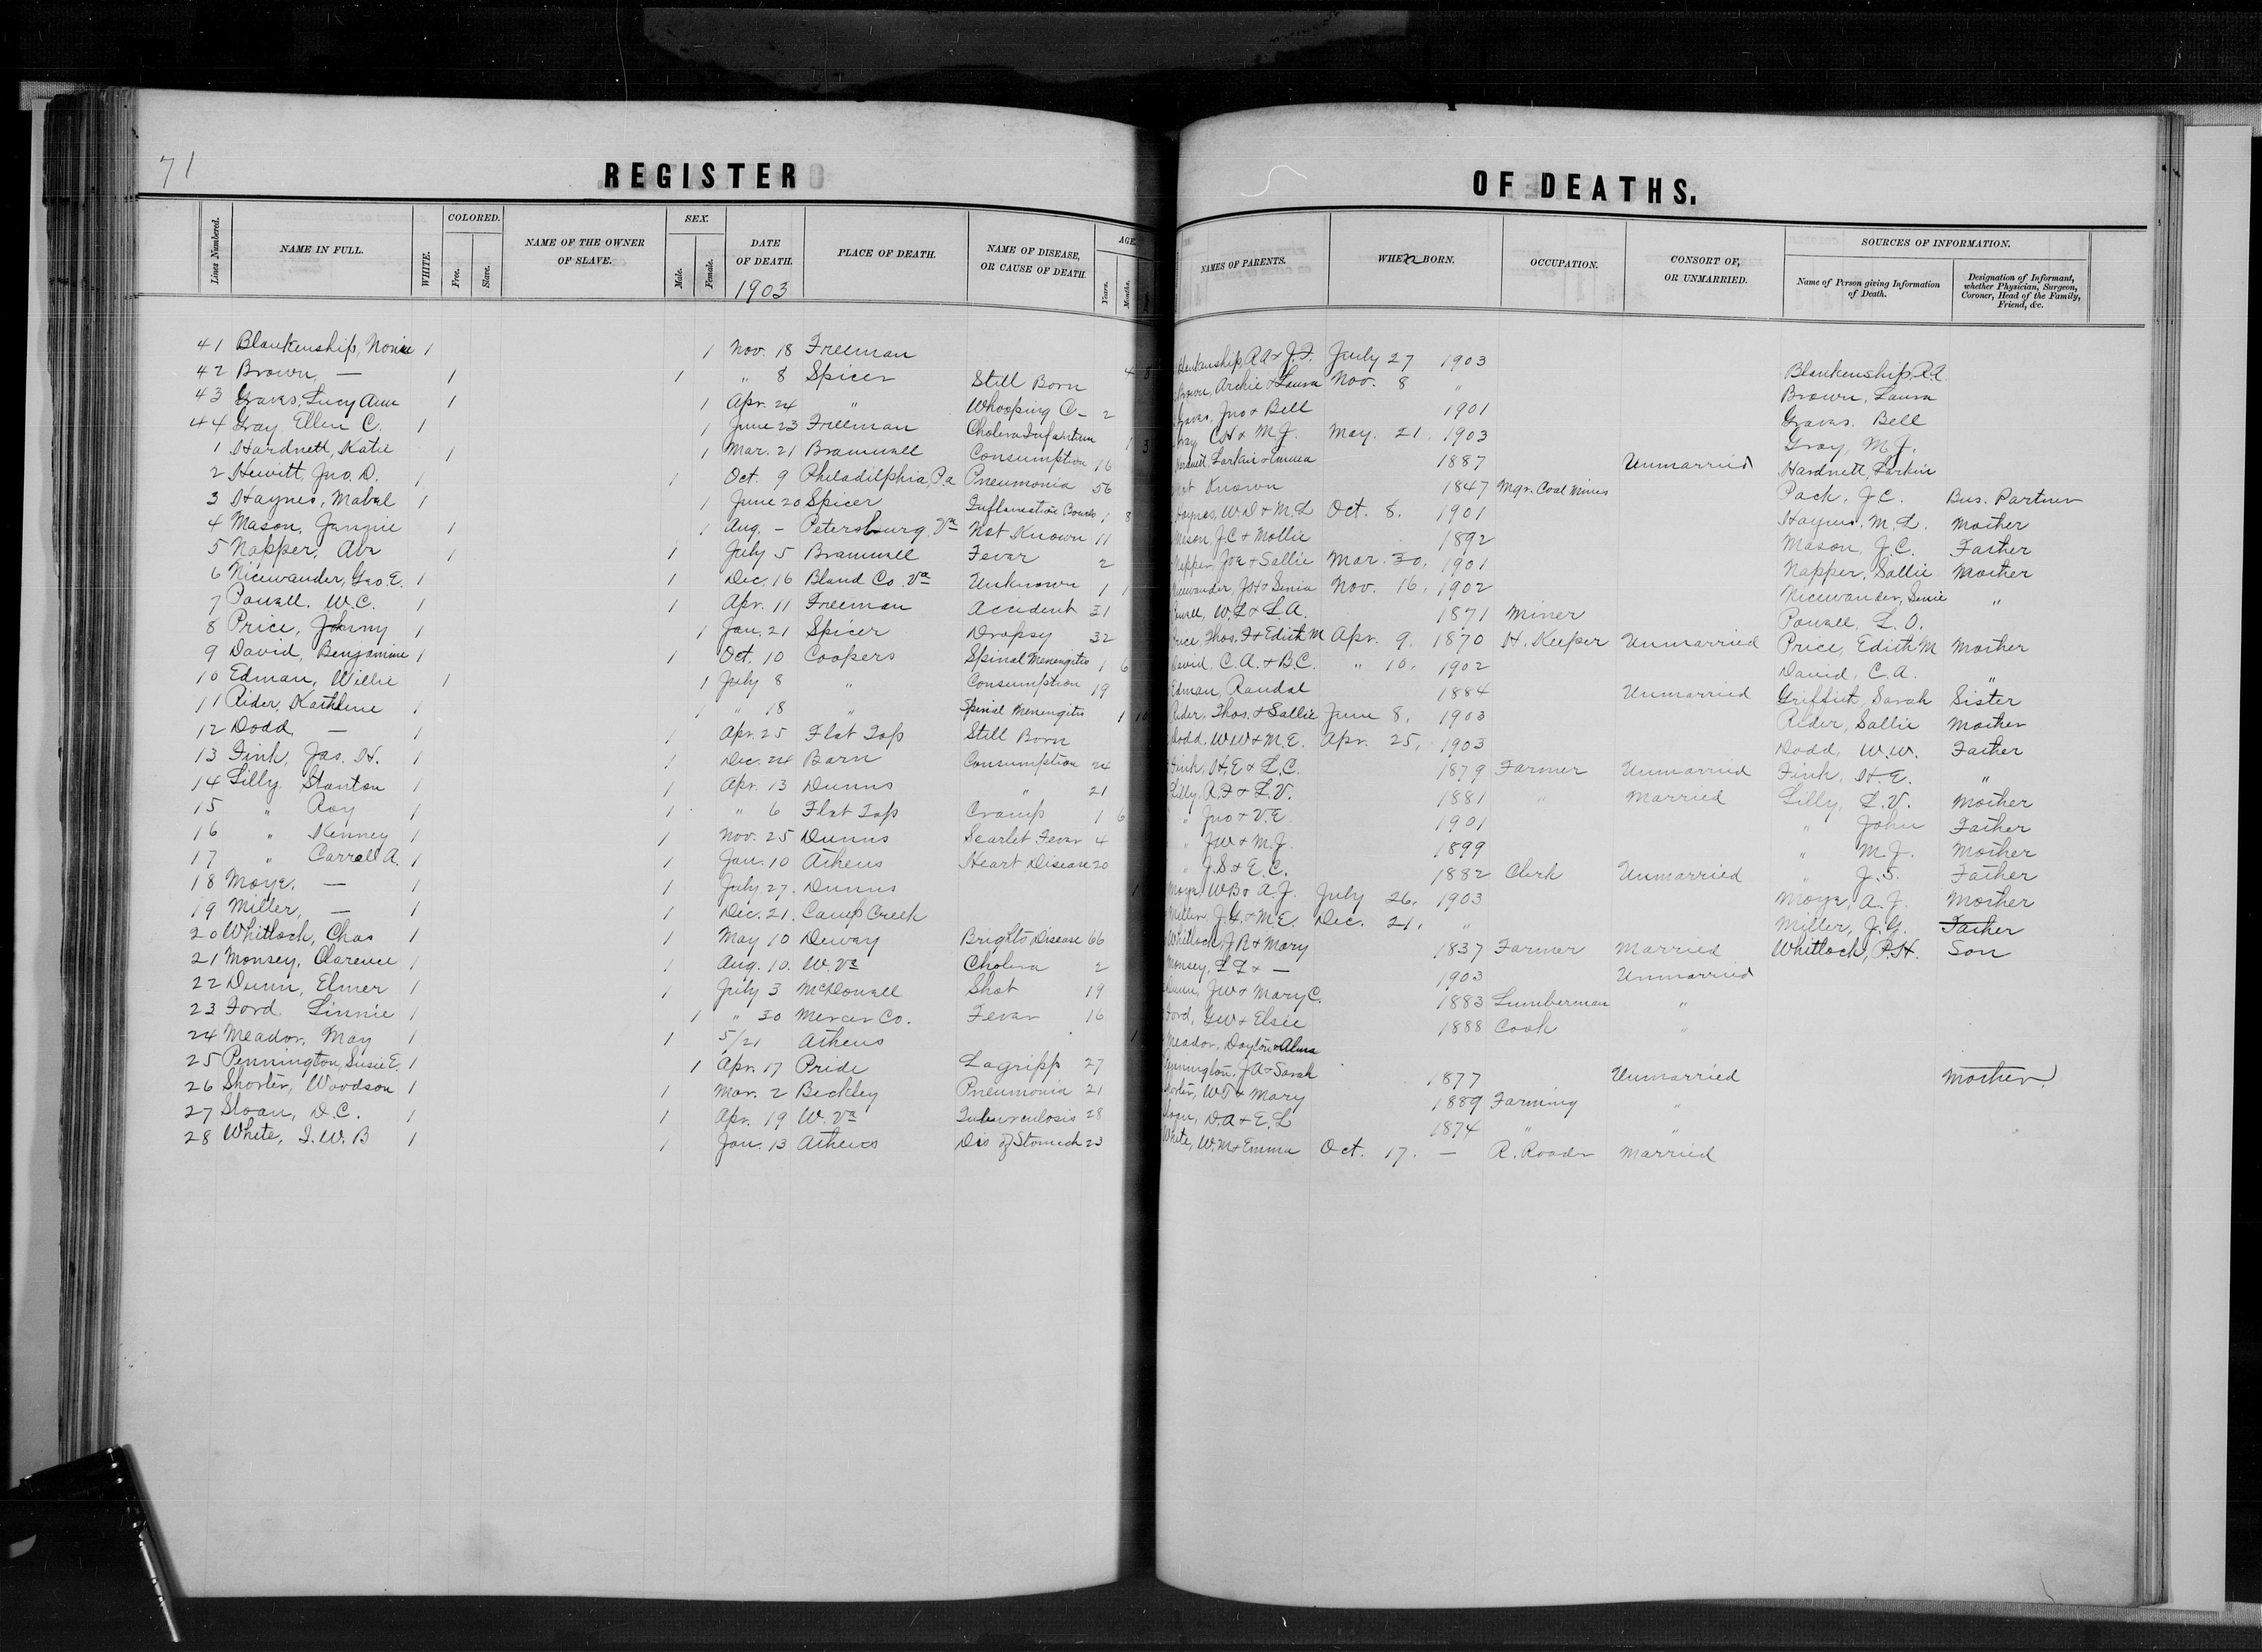 71
REGISTER OF DEATHS.
Lines Numbered. NAME IN FULL. WHITE. COLORED. Free. Slave. NAME OF THE OWNER OF SLAVE. SEX. Male. Female. DATE OF DEATH. 1903 PLACE OF DEATH. NAME OF DISEASE, OR CAUSE OF DEATH. AGE. Years. Months. NAMES OF PARENTS. WHEN BORN. OCCUPATION. CONSORT OF, OR UNMARRIED. SOURCES OF INFORMATION. Name of Person giving Information of Death. Designation of Informant, whether Physician, Surgeon, Coroner, Head of the Family, Friend, &c.
41 Blankenship, 1 1 Nov. 18 Freeman 4 8 Blankenship, R.A & J.F. July 27 1903 Blankenship, R.A.
42 Brown, — 1 1 " 8 Spicer Still Born Brown, Archie & Laura Nov. 8 " Brown, Laura
43 Graves, Lucy Ann 1 1 Apr. 24 " Whooping C- 2 Graves, Jno & Bell 1901 Graves, Bell
44 Gray, Ellen C. 1 1 June 23 Freeman Cholera Infantum 1 3 Gray, CH & M.J. May. 21. 1903 Gray, M.J.
1 Hardnett, Katie 1 1 Mar. 21 Bramwell Consumption 16 Hardnett, Larkin & Emma 1887 Unmarried Hardnett, Larkin
2 Hewitt, Jno. D. 1 1 Oct. 9 Philadelphia, Pa Pneumonia 56 Not Known 1847 Mgr. Coal Mines Pack, J.C. Bus. Partner
3 Haynes, Mabel 1 1 June 20 Spicer Inflamation Bowels 1 8 Haynes, W.D & M.L Oct. 8. 1901 Haynes, M.L. Mother
4 Mason, Jannie 1 1 Aug. - Petersburg, Va Not Known 11 Mason, J.C & Mollie 1892 Mason, J.C. Father
5 Napper, Abr 1 1 July 5 Bramwell Fever 2 Napper, Joe & Sallie Mar. 30. 1901 Napper, Sallie Mother
6 Nicewander, Geo. E. 1 1 Dec. 16 Bland Co. Va Unknown 1 1 Nicewander, JH & Senia Nov. 16. 1902 Nicewander, Senie "
7 Powell, W.C. 1 1 Apr. 11 Freeman Accident 31 Powell, W.L & L.A. 1871 Miner Powell, L.O.
8 Price, Johnny 1 1 Jan. 21 Spicer Dropsy 32 Price, Thos. F & Edith M Apr. 9. 1870 H. Keeper Unmarried Price, Edith M Mother
9 David, Benjamine 1 1 Oct. 10 Coopers Spinal Menengites 1 6 David, C.A. & B.C. " 10. 1902 David, C.A. "
10 Edman, Willie 1 1 July 8 " Consumption 19 Edman, Randal 1884 Unmarried Griffith, Sarah Sister
11 Rider, Kathlene 1 1 " 18 " Spinal Menengites 1 10 Rider, Thos. & Sallie June 8. 1903 Rider, Sallie Mother
12 Dodd — 1 1 Apr. 25 Flat Top Still Born Dodd, WW & M.E. Apr. 25. 1903 Dodd, W.W. Father
13 Fink, Jas. H. 1 1 Dec. 24 Barn Consumption 24 Fink, H.E & L.C. 1879 Farmer Unmarried Fink, H.E. "
14 Lilly, Stanton 1 1 Apr. 13 Dunns " 21 Lilly, R.F & L.V. 1881 " Married Lilly, L.V. Mother
15 " Roy 1 1 " 6 Flat Top Croup 1 6 " Jno & V.E. 1901 " John Father
16 " Kenney 1 1 Nov. 25 Dunns Scarlet Fever 4 " JW & M.J. 1899 " M.J. Mother
17 " Carrall A. 1 1 Jan. 10 Athens Heart Disease 20 " J.S & E.C. 1882 Clerk Unmarried " J.S. Father
18 Moye, — 1 1 July 27. Dunns 1 Moye, WB & A.J. July 26. 1903 Moye, A.J. Mother
19 Miller, — 1 1 Dec. 21. Camp Creek Miller, J.G. & M.E. Dec. 21. " Miller, J.G. Father
20 Whitlock, Chas 1 1 May 10 Dewey Brights Disease 66 Whitlock, J R & Mary 1837 Farmer Married Whitlock, P.H. Son
21 Monsey, Clarence 1 1 Aug. 10. W. Va Cholera 2 Monsey, L L & — 1903 Unmarried
22 Dunn, Elmer 1 1 July 3 McDowell Shot 19 Dunn, JW & Mary C. 1883 Lumberman "
23 Ford, Linnie 1 1 " 30 Mercer Co. Fever 16 Ford, GW & Elsie 1888 Cook "
24 Meador, May 1 1 5/21 Athens 1 Meador, Dayton & Alma
25 Pennington, Susie E. 1 1 Apr. 17 Pride Lagripp 27 Pennington, JA & Sarah 1877 Unmarried Mother
26 Shorter, Woodson 1 1 Mar. 2 Beckley Pneumonia 21 Shorter, WT & Mary 1889 Farming "
27 Sloan, D.C. 1 1 Apr. 19 W. Va Tuberculosis 28 Sloan, D.A & E.L 1874 " "
28 White, I.W.B 1 1 Jan. 13 Athens Dis of Stomach 23 White, W.M & Emma Oct. 17. — R. Roader Married